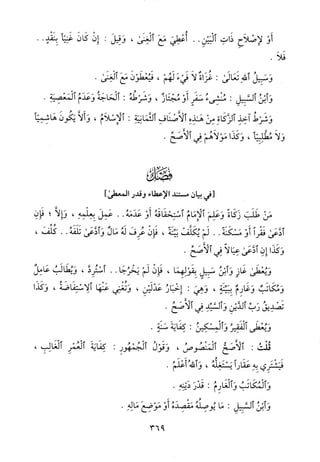 أَوْ لِإِصْلَاحِ ذَاتِ ٱلْبَيْنِ.. أُعْطِيَ مَعَ ٱلْغِنَىٰ ، وَقِيلَ : إِنْ كَانَ غَنِيّاً بِنَقْدٍ..
فَلَا .
وَسَبِيلُ ٱللهِ تَعَالَىٰ : غُزَاةٌ لَا فَيْءَ لَهُمْ ، فَيُعْطَوْنَ مَعَ ٱلْغِنَىٰ .
وَٱبْنُ ٱلسَّبِيلِ : مُنْشِىءُ سَفَرٍ أَوْ مُجْتَازٌ ، وَشَرْطُهُ : ٱلْحَاجَةُ وَعَدَمُ ٱلْمَعْصِيَةِ .
وَشَرْطُ آخِذِ ٱلزَّكَاةِ مِنْ هَـٰذِهِ ٱلْأَصْنَافِ ٱلثَّمَانِيَةِ : ٱلْإِسْلَامُ ، وَأَلَّا يَكُونَ هَاشِمِيّاً
وَلَا مُطَّلِبِيّاً ، وَكَذَا مَوْلَاهُمْ فِي ٱلْأَصَحِّ .
فَصْلٌ
[في بيان مستند الإعطاء وقدر المعطىٰ]
مَنْ طَلَبَ زَكَاةً وَعَلِمَ ٱلْإِمَامُ ٱسْتِحْقَاقَهُ أَوْ عَدَمَهُ.. عَمِلَ بِعِلْمِهِ ، وَإِلَّا ؛ فَإِنِ
ٱدَّعَىٰ فَقْراً أَوْ مَسْكَنَةً.. لَمْ يُكَلَّفْ بَيِّنَةً ، فَإِنْ عُرِفَ لَهُ مَالٌ وَٱدَّعَىٰ تَلَفَهُ.. كُلِّفَ ،
وَكَذَا إِنِ ٱدَّعَىٰ عِيَالاً فِي ٱلْأَصَحِّ .
وَيُعْطَىٰ غَازٍ وَٱبْنُ سَبِيلٍ بِقَوْلِهِمَا ، فَإِنْ لَمْ يَخْرُجَا.. ٱسْتُرِدَّ ، وَيُطَالَبُ عَامِلٌ
وَمُكَاتَبٌ وَغَارِمٌ بِبَيِّنَةٍ ، وَهِيَ : إِخْبَارُ عَدْلَيْنِ ، وَيُغْنِي عَنْهَا ٱلِٱسْتِفَاضَةُ ، وَكَذَا
تَصْدِيقُ رَبِّ ٱلدَّيْنِ وَٱلسَّيِّدِ فِي ٱلْأَصَحِّ .
وَيُعْطَى ٱلْفَقِيرُ وَٱلْمِسْكِينُ : كِفَايَةَ سَنَةٍ .
قُلْتُ : ٱلْأَصَحُّ ٱلْمَنْصُوصُ ، وَقَوْلُ ٱلْجُمْهُورِ : كِفَايَةُ ٱلْعُمُرِ ٱلْغَالِبِ ،
فَيَشْتَرِي بِهِ عَقَاراً يَسْتَغِلُّهُ ، وَٱللهُ أَعْلَمُ .
وَٱلْمُكَاتَبُ وَٱلْغَارِمُ : قَدْرَ دَيْنِهِ .
وَٱبْنُ ٱلسَّبِيلِ : مَا يُوصِلُهُ مَقْصِدَهُ أَوْ مَوْضِعَ مَالِهِ .
٣٦٩